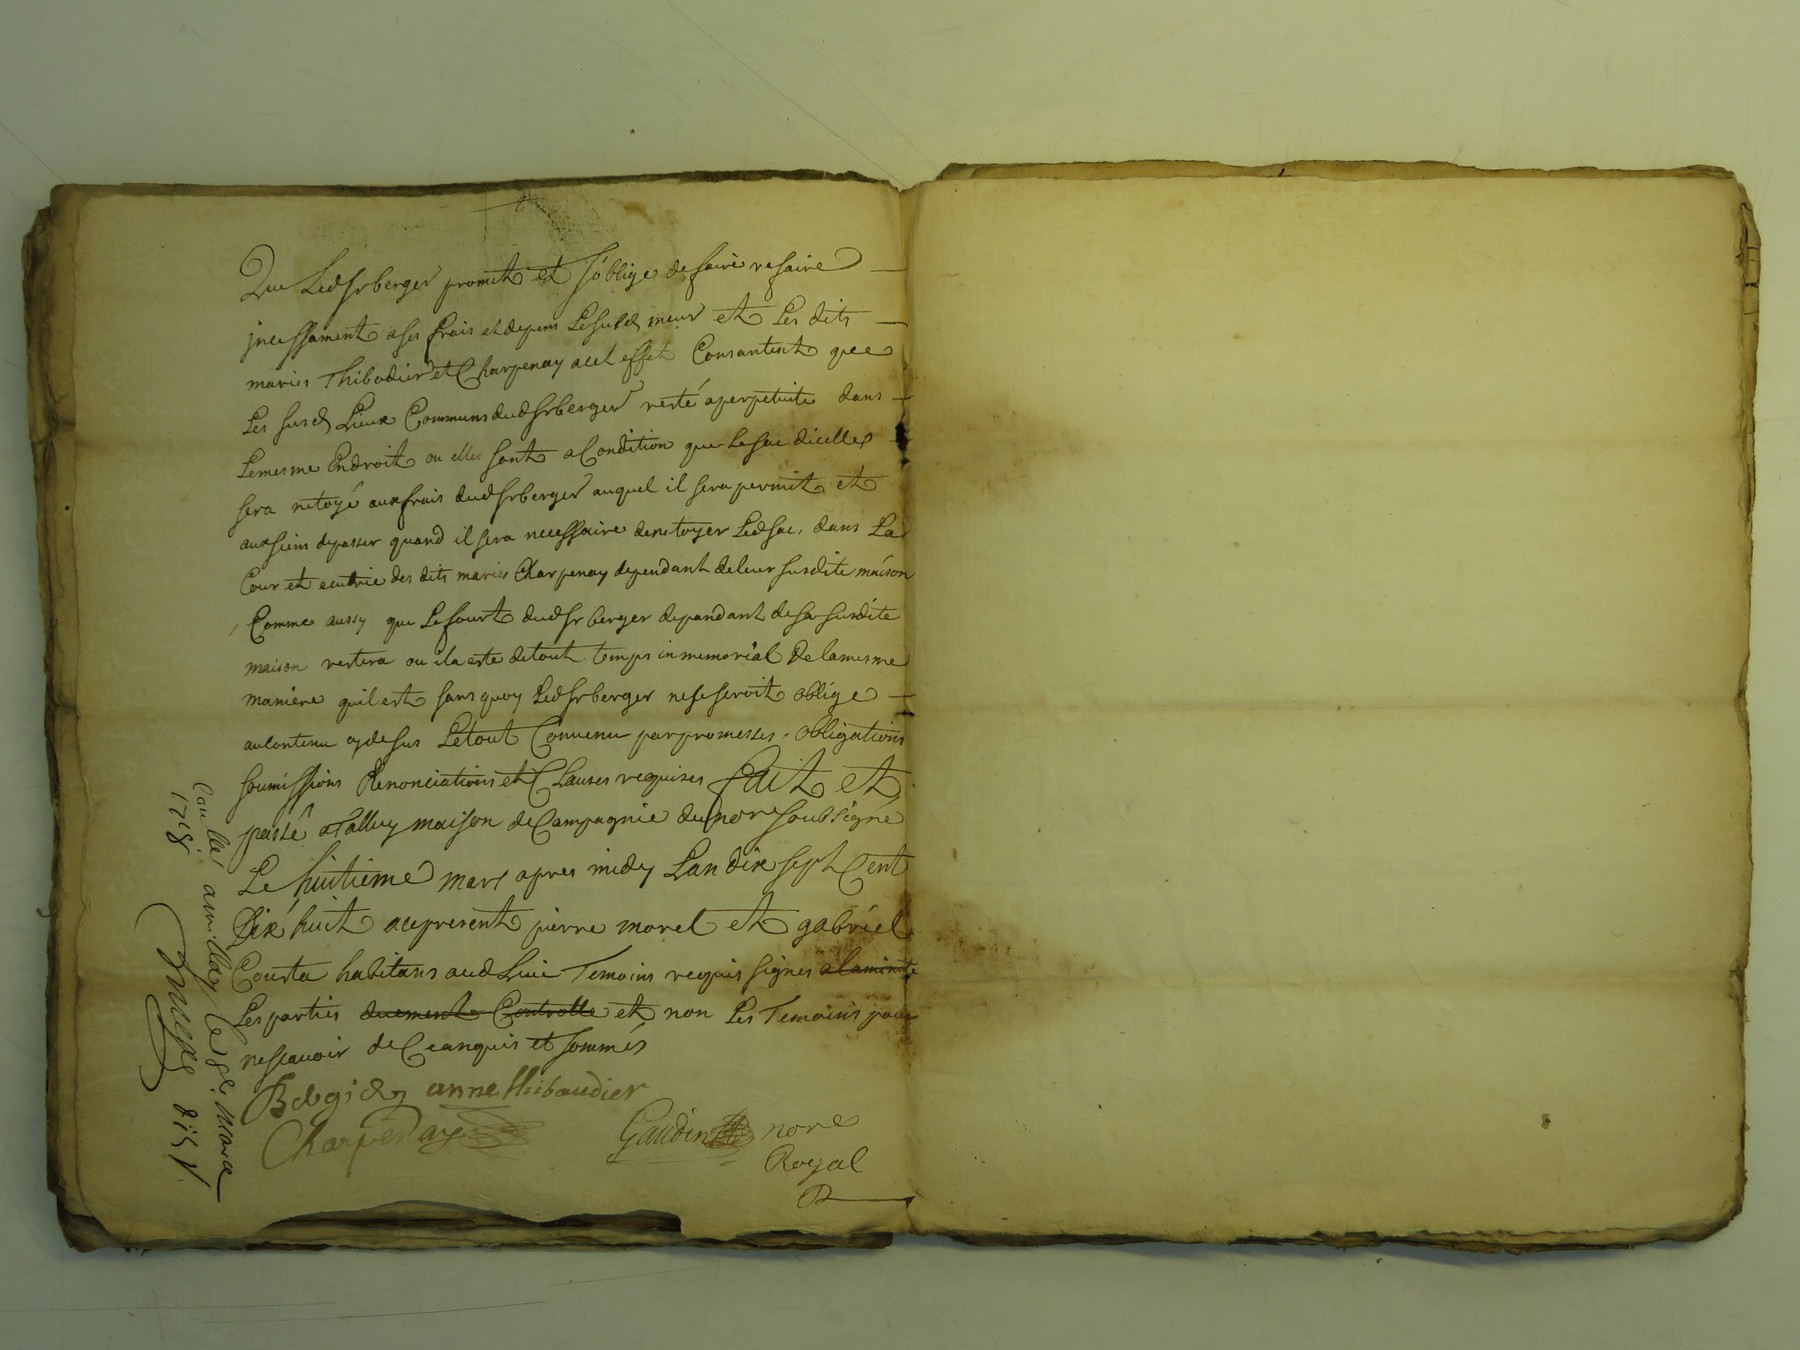 Que Ledsrberger promit et s'oblige de faire refaire
jncessament a ses frais et depens Le susd meur et Les dits
maries Thibodier et Charpenay a cet effet Consantent que
Les susd Lieux Communs dud sr berger resté a perpetuite dans
Le mesme Endroit ou elles sont a Condition que Le sac dicelles
sera netoyé aux frais dud sr berger auquel il sera permit et
aux siens de passer quand il sera necessaire de netoyer Led sac, dans La
Cour et ecutrie des dits maries Charpenay dependant de leur susdite maison
Comme aussy que Le fourt dud sr berger depandant de sa susdite
maison restera ou il a este de tout temps in memorial De la mesme
maniere quil est sans quoy Led sr berger ne se seroit oblige
au contenu cy de sus Le tout Convenu par promesses, obligations
soumissions Renonciations et Clauses requises fait et
passé a Talluy maison de Campagnie du nore soubsigné
Le huitieme mars apres midy Lan dix sept Cent
Dix huit ace present pierre morel et gabriel
Courta habitans aud Lieu Temoins requis signes a la minute
Les parties duement Controlle et non Les Temoins pour
ne scavoir de Ce anquis et sommés
anne thibaudier
Charpenay
Gaudin nore
Royal
Le 8e mars
1718